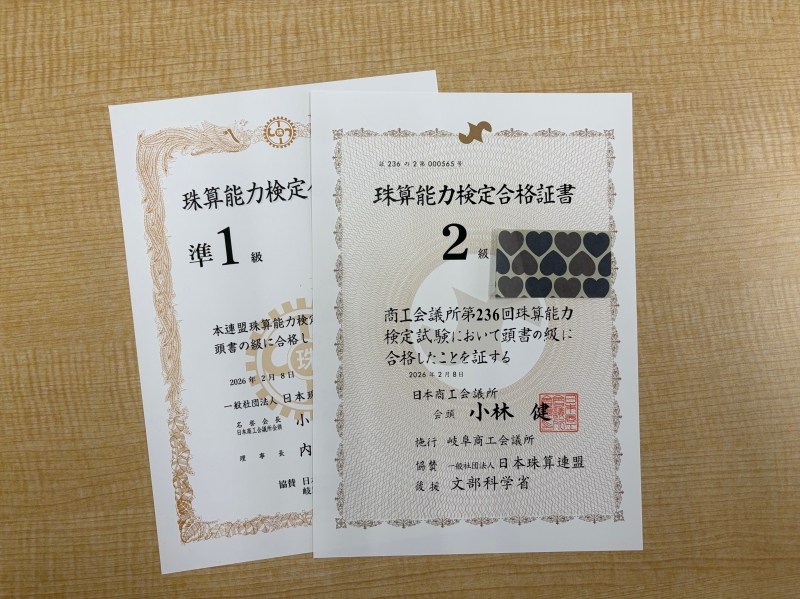 珠算能力検定
準1級
本連盟珠算能力検定
頭書の級に合格し
2026年2月8日
一般社団法人 日本珠
名誉会長
日本商工会議所会頭 小
理事長 内
協賛 日
岐
珠
証236の2第000565号
珠算能力検定合格証書
2級
商工会議所第236回珠算能力
検定試験において頭書の級に
合格したことを証する
2026年2月8日
日本商工会議所
会頭 小林 健
施行 岐阜商工会議所
協賛 一般社団法人日本珠算連盟
後援 文部科学省